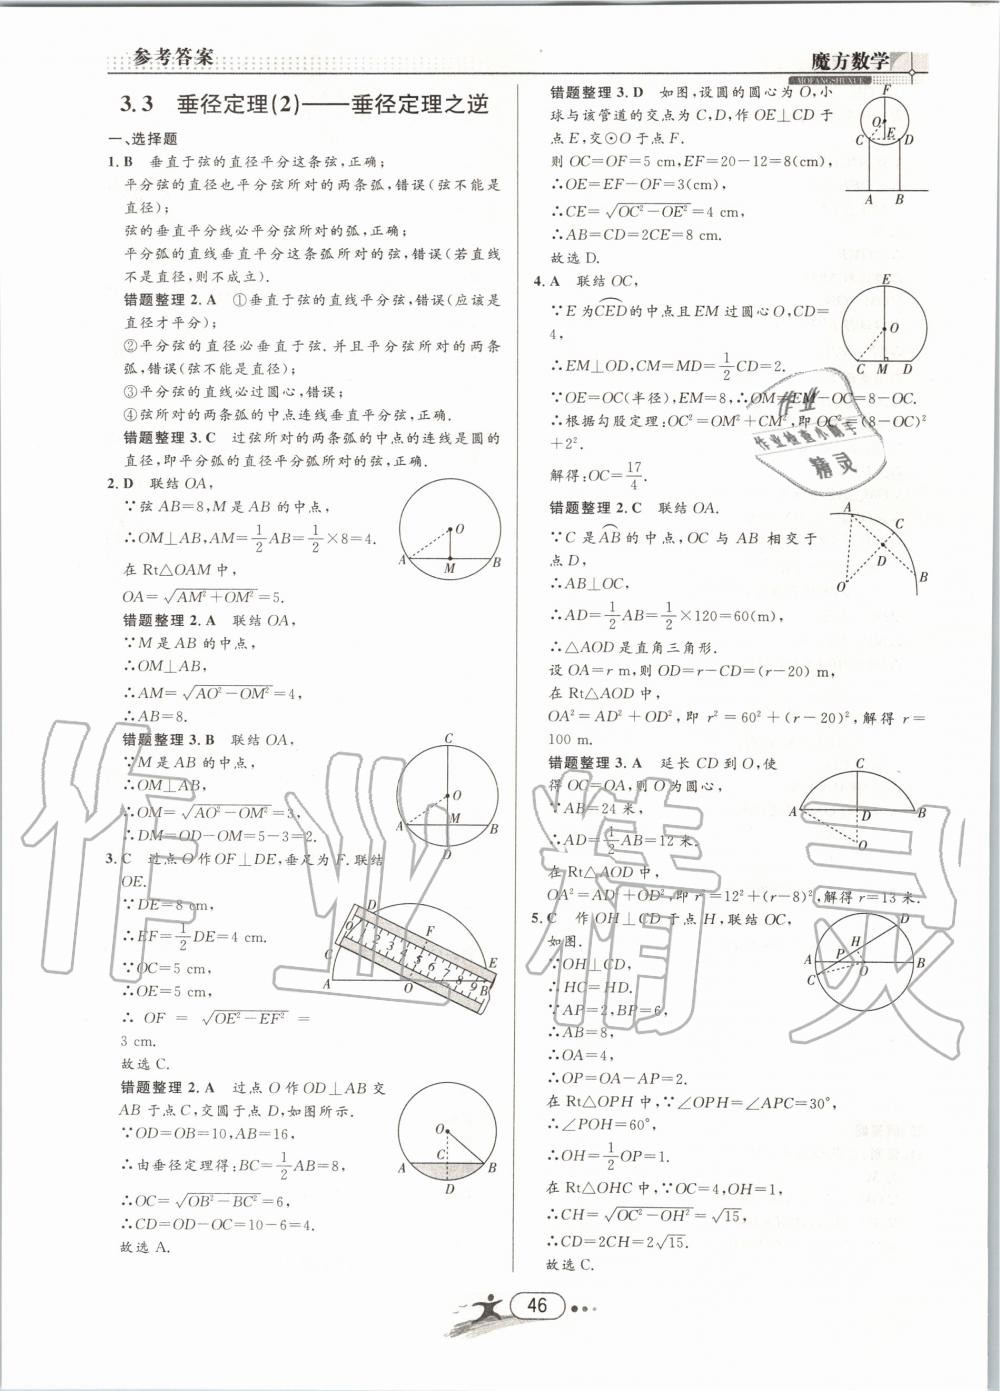 参考答案
魔方数学
MOFANGSHUXUE
3.3 垂径定理(2)——垂径定理之逆
一、选择题
1. B 垂直于弦的直径平分这条弦,正确;
平分弦的直径也平分弦所对的两条弧,错误(弦不能是
直径);
弦的垂直平分线必平分弦所对的弧,正确;
平分弧的直线垂直平分这条弧所对的弦,错误(若直线
不是直径,则不成立).
错题整理 2. A ①垂直于弦的直线平分弦,错误(应该是
直径才平分);
②平分弦的直径必垂直于弦.并且平分弦所对的两条
弧,错误(弦不能是直径);
③平分弦的直线必过圆心,错误;
④弦所对的两条弧的中点连线垂直平分弦,正确.
错题整理 3. C 过弦所对的两条弧的中点的连线是圆的
直径,即平分弧的直径平分弧所对的弦,正确.
2. D 联结 OA,
∵弦 AB=8,M 是 AB 的中点,
∴OM⊥AB,AM=1/2AB=1/2×8=4.
在 Rt△OAM 中,
OA=√(AM²+OM²)=5.
错题整理 2. A 联结 OA,
∵M 是 AB 的中点,
∴OM⊥AB,
∴AM=√(AO²-OM²)=4,
∴AB=8.
错题整理 3. B 联结 OA,
∵M 是 AB 的中点,
∴OM⊥AB,
∴OM=√(AO²-OM²)=3,
∴DM=OD-OM=5-3=2.
3. C 过点 O 作 OF⊥DE,垂足为 F.联结
OE.
∵DE=8 cm,
∴EF=1/2DE=4 cm.
∵OC=5 cm,
∴OE=5 cm,
∴ OF = √(OE²-EF²) =
3 cm.
故选 C.
错题整理 2. A 过点 O 作 OD⊥AB 交
AB 于点 C,交圆于点 D,如图所示.
∵OD=OB=10,AB=16,
∴由垂径定理得:BC=1/2AB=8,
∴OC=√(OB²-BC²)=6,
∴CD=OD-OC=10-6=4.
故选 A.
错题整理 3. D 如图,设圆的圆心为 O,小
球与该管道的交点为 C,D,作 OE⊥CD 于
点 E,交⊙O 于点 F.
则 OC=OF=5 cm,EF=20-12=8(cm),
∴OE=EF-OF=3(cm),
∴CE=√(OC²-OE²)=4 cm,
∴AB=CD=2CE=8 cm.
故选 D.
4. A 联结 OC,
∵E 为CED的中点且 EM 过圆心 O,CD=
4,
∴EM⊥OD,CM=MD=1/2CD=2.
∵OE=OC(半径),EM=8,∴OM=EM-OC=8-OC.
∴根据勾股定理:OC²=OM²+CM²,即 OC²=(8-OC)²
+2².
解得:OC=17/4.
错题整理 2. C 联结 OA.
∵C 是AB的中点,OC 与 AB 相交于
点 D,
∴AB⊥OC,
∴AD=1/2AB=1/2×120=60(m),
∴△AOD 是直角三角形.
设 OA=r m,则 OD=r-CD=(r-20) m,
在 Rt△AOD 中,
OA²=AD²+OD²,即 r²=60²+(r-20)²,解得 r=
100 m.
错题整理 3. A 延长 CD 到 O,使
得 OC=OA,则 O 为圆心,
∵AB=24 米,
∴AD=1/2AB=12 米.
在 Rt△AOD 中,
OA²=AD²+OD²,即 r²=12²+(r-8)²,解得 r=13 米.
5. C 作 OH⊥CD 于点 H,联结 OC,
如图.
∵OH⊥CD,
∴HC=HD.
∵AP=2,BP=6,
∴AB=8,
∴OA=4,
∴OP=OA-AP=2.
在 Rt△OPH 中,∵∠OPH=∠APC=30°,
∴∠POH=60°,
∴OH=1/2OP=1.
在 Rt△OHC 中,∵OC=4,OH=1,
∴CH=√(OC²-OH²)=√15,
∴CD=2CH=2√15.
故选 C.
46
作业精灵
作业
作业检查小帮手
精灵